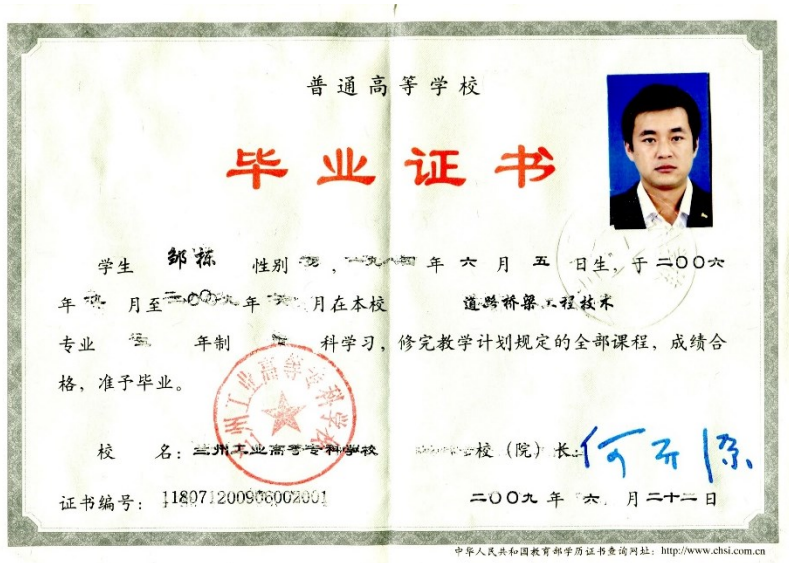 普通高等学校
毕业证书
学生 邹栋 性别 , 一九八四 年 六 月 五 日生, 于 二〇〇六
年 九 月至 二〇〇九 年 六 月在本校 道路桥梁工程技术
专业 三 年制 科学习, 修完教学计划规定的全部课程, 成绩合
格, 准予毕业。
兰州工业高等专科学校
校 名: 兰州工业高等专科学校 校（院）长:
证书编号: 118071200906002001 二〇〇九 年 六 月 二十二 日
中华人民共和国教育部学历证书查询网址: http://www.chsi.com.cn